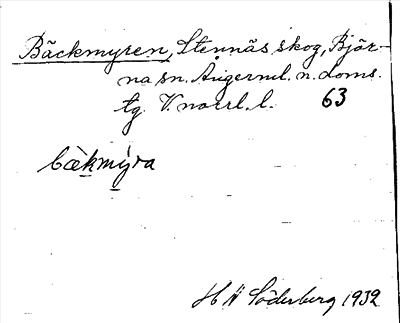 Bäckmyren, Stennäs skog, Björ-
na sn. Ångerml. n. doms.
tg. V. norrl. l. 63
bèkmýra
H N Söderberg 1932